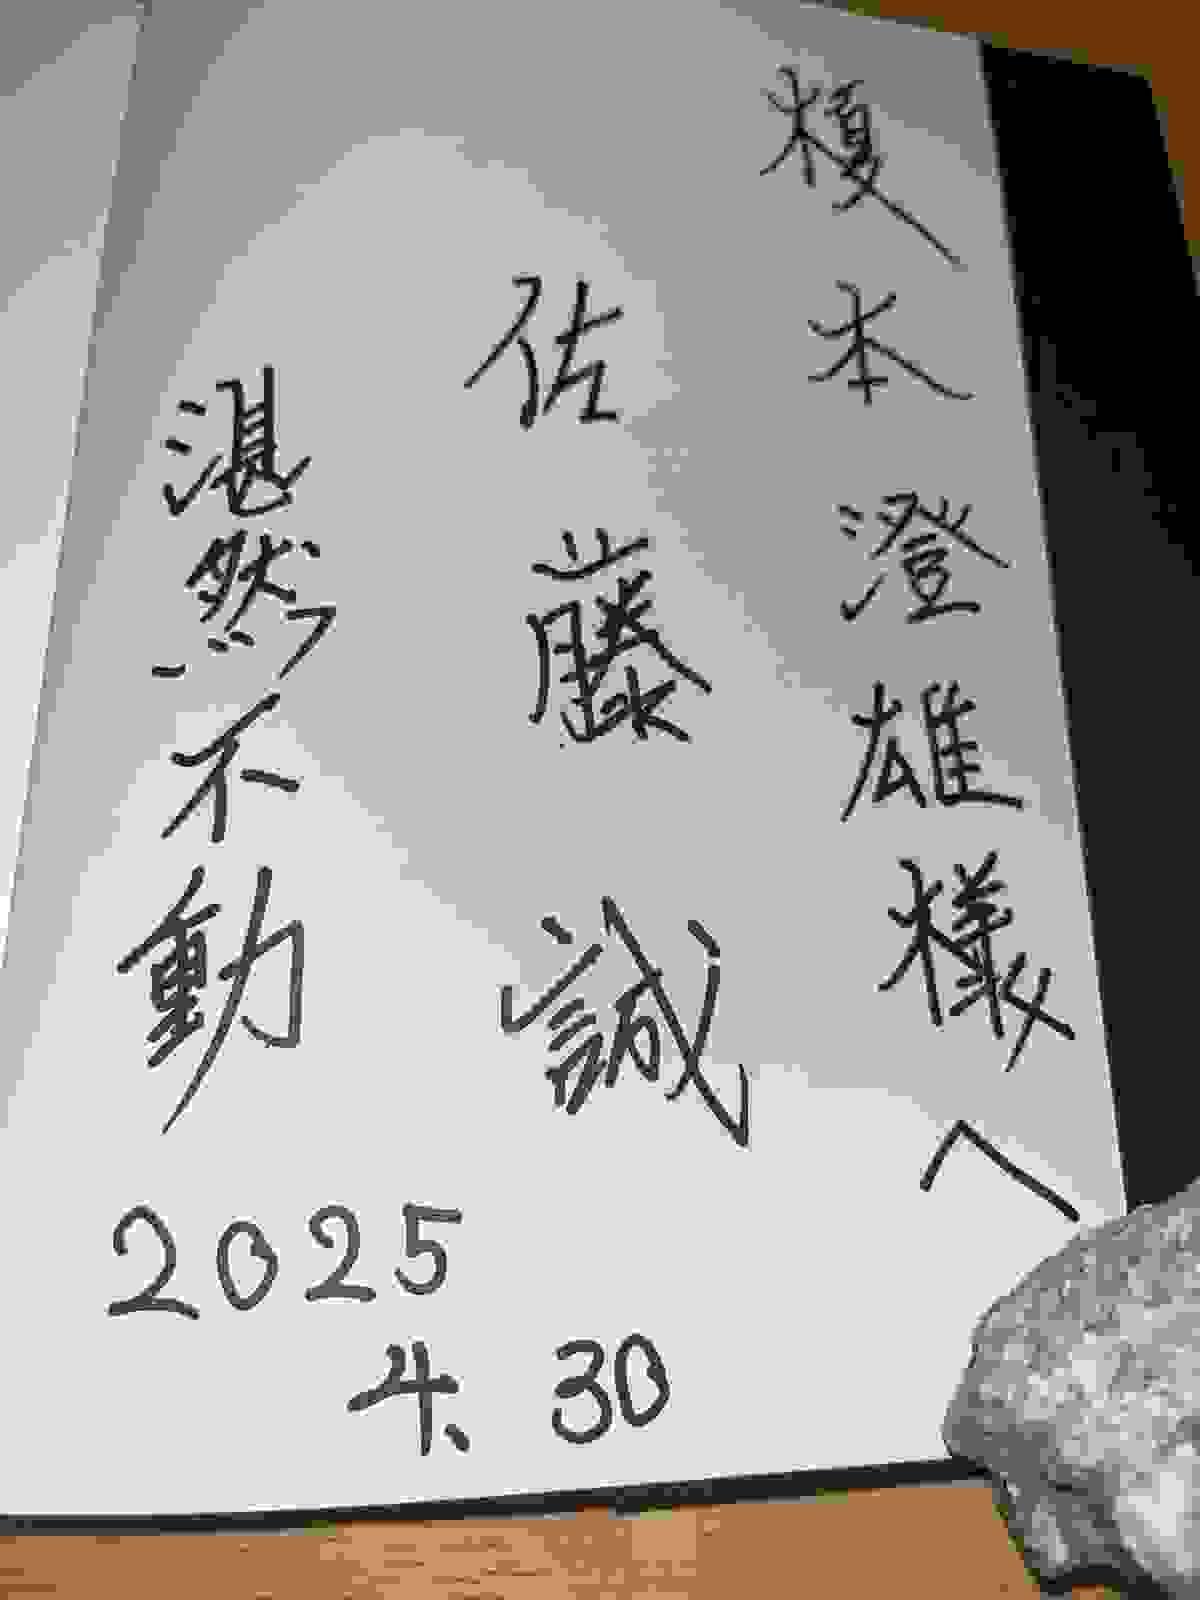 榎本澄雄様へ
佐藤誠
湛然不動
2025
4.30